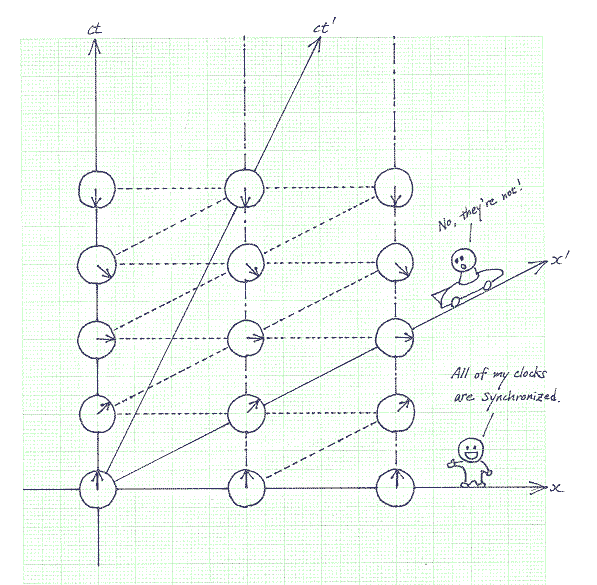 ct
ct'
No, they're not!
x'
All of my clocks
are synchronized.
x